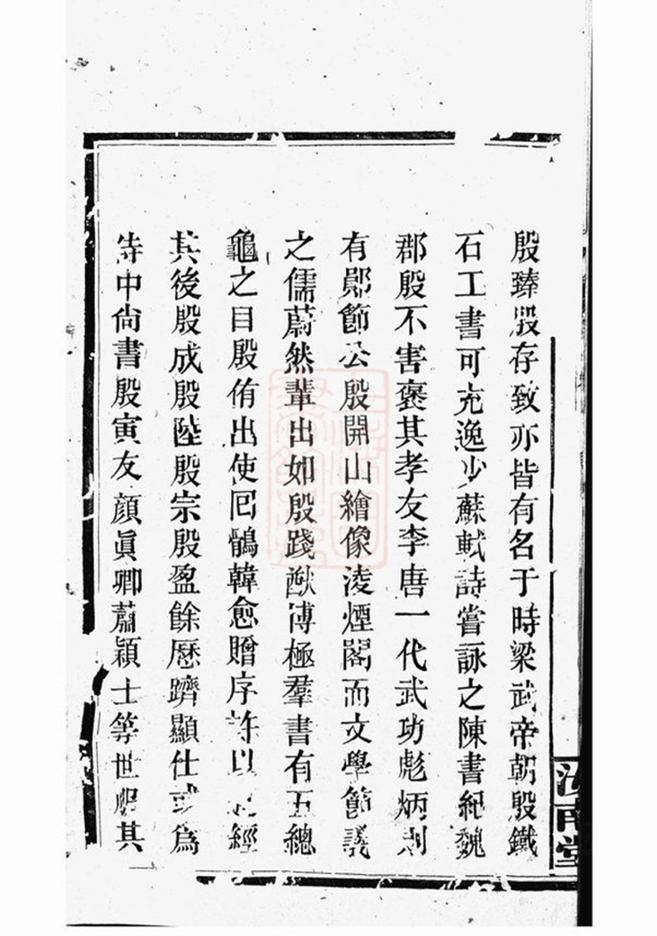 殷臻殷存致亦皆有名于時梁武帝朝殷鐵
石工書可充逸少蘇軾詩嘗詠之陳書紀魏
郡殷不害褒其孝友李唐一代武功彪炳則
有鄖節公殷開山繪像淩煙閣而文學節議
之儒蔚然輩出如殷踐猷博極羣書有五總
龜之目殷侑出使囘鶻韓愈贈序許以經
其後殷成殷陸殷宗殷盈餘歷躋顯仕或爲
侍中尙書殷寅友顏眞卿蕭穎士等世服其
汝南堂